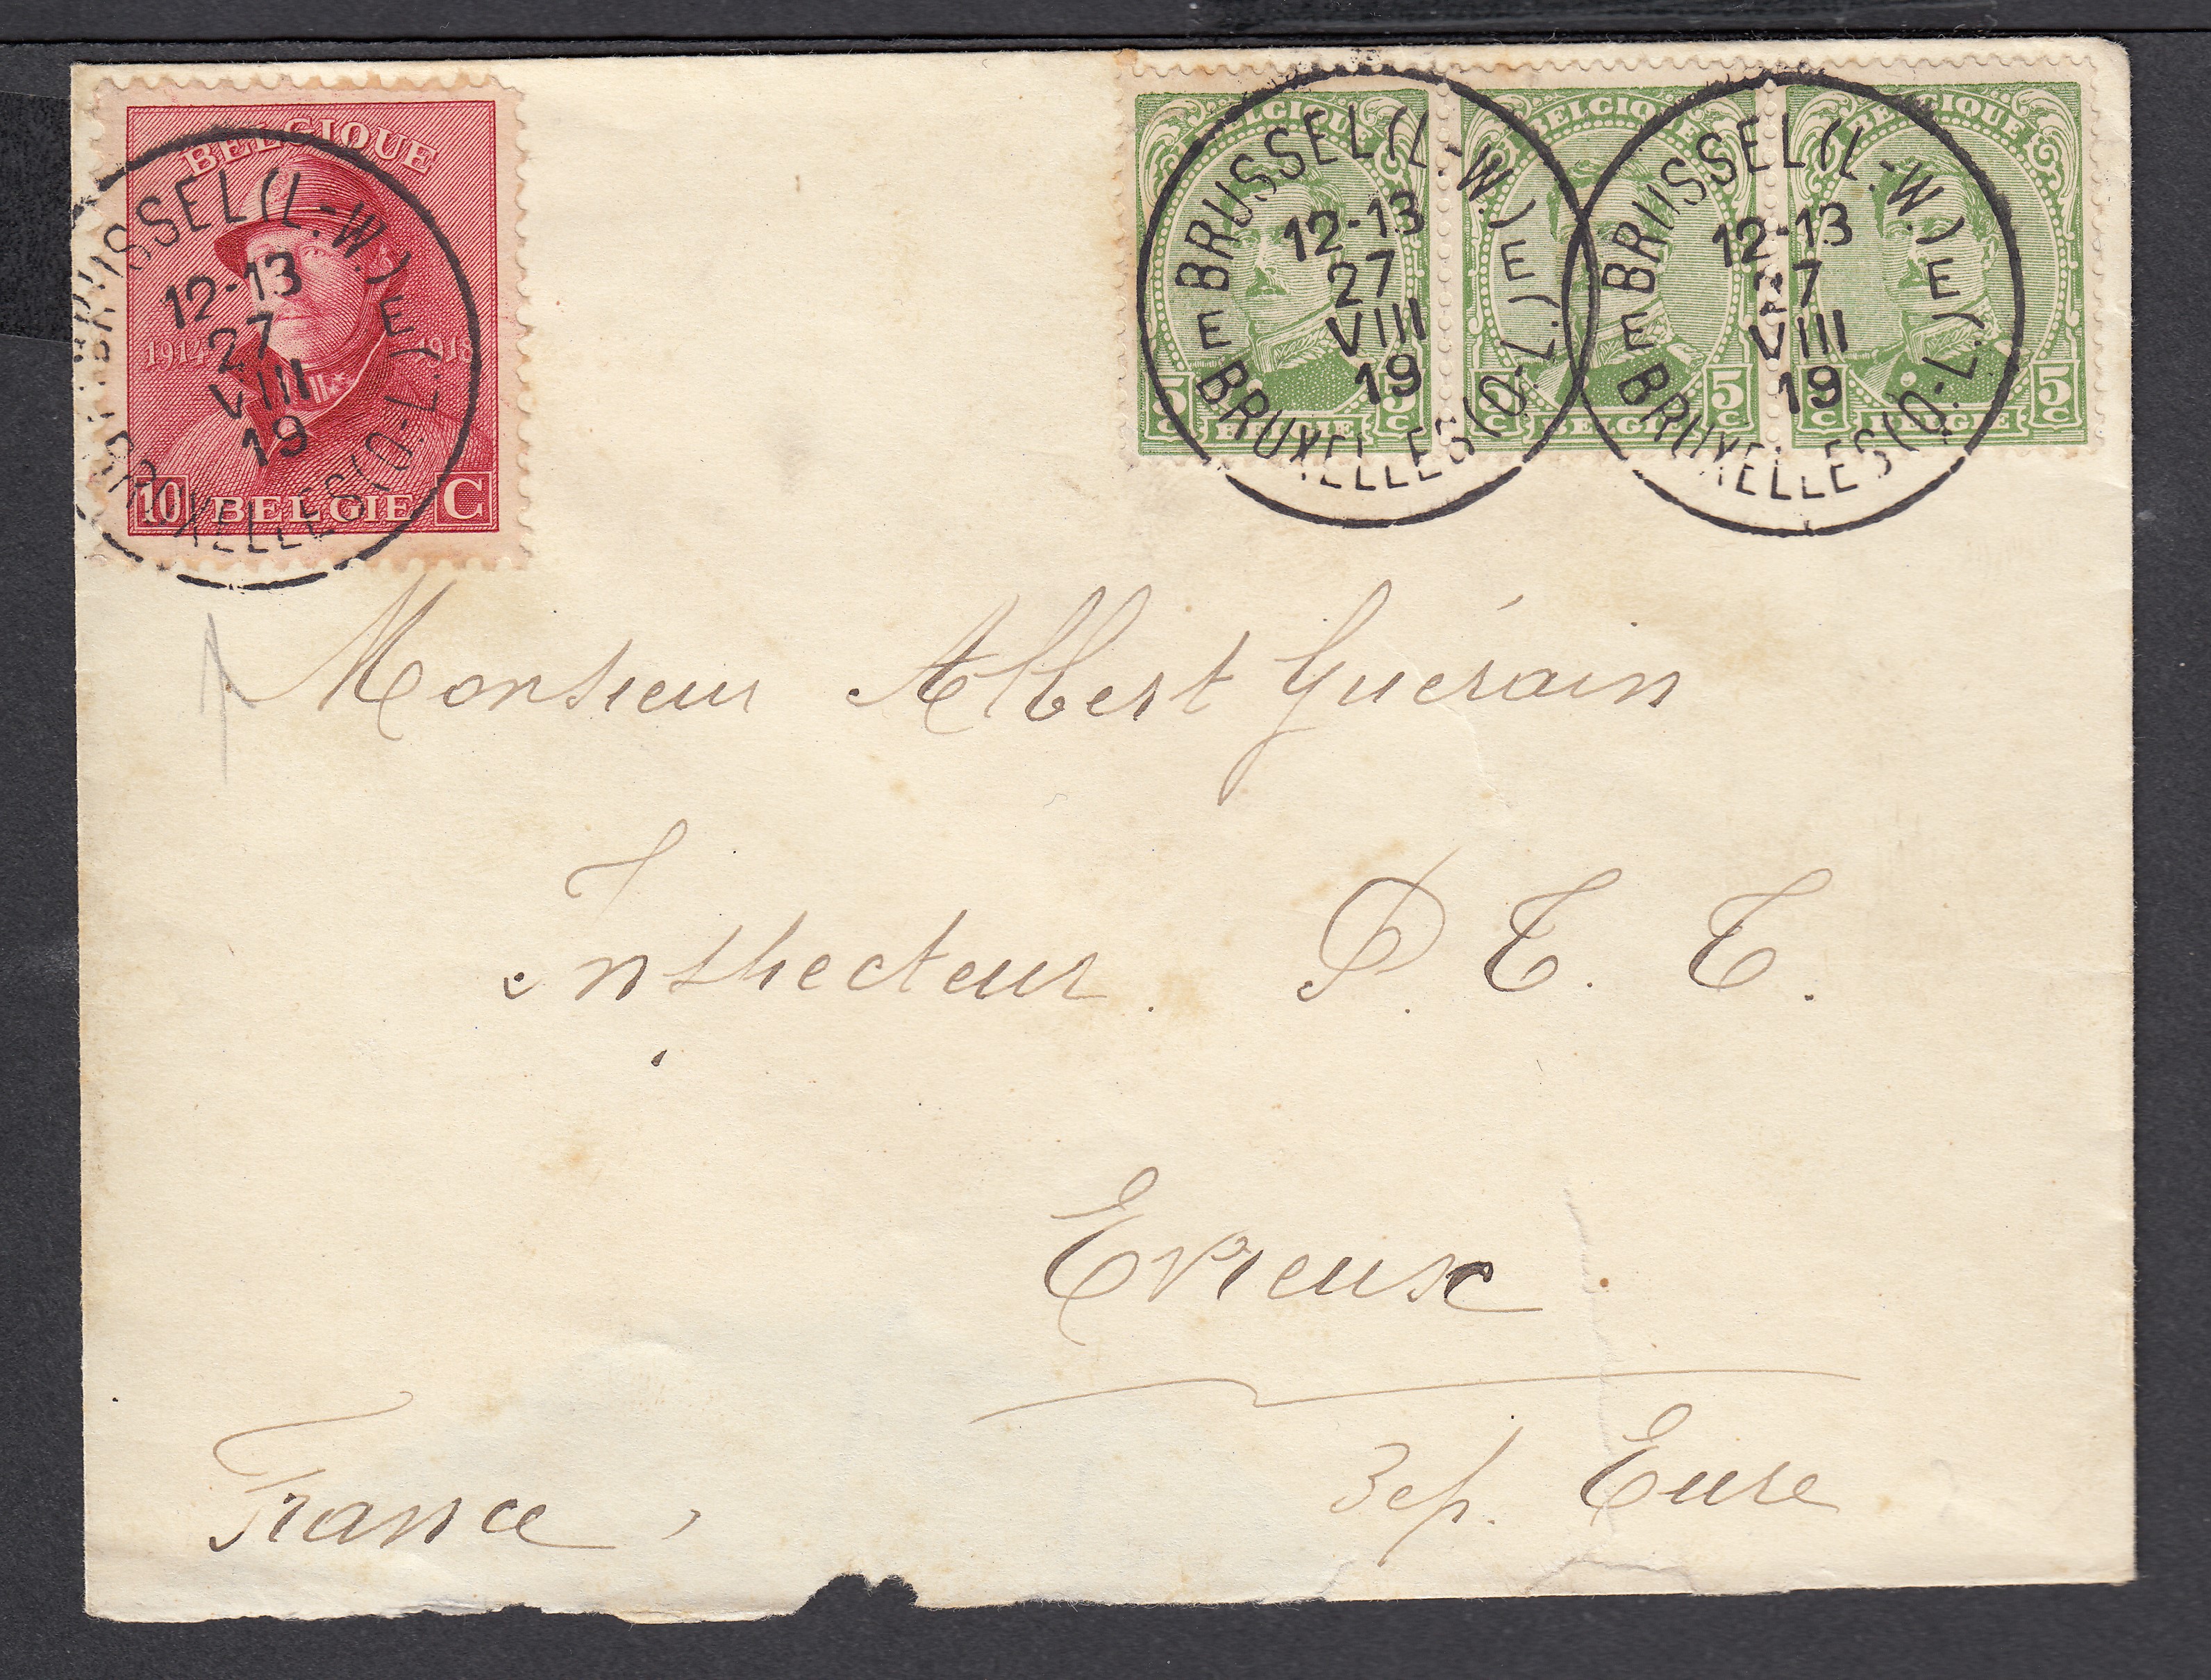 BELGIQUE
1914 1918
10 BELGIE C
BRUSSEL (L.-W.) E
12-13
27
VIII
19
BRUXELLES (Q.-L.) E
BELGIQUE
5 C BELGIE 5 C
BELGIQUE
5 C BELGIE 5 C
BELGIQUE
5 C BELGIE 5 C
BRUSSEL (L.-W.) E
12-13
27
VIII
19
E BRUXELLES (Q.-L.)
BRUSSEL (L.-W.) E
12-13
27
VIII
19
E BRUXELLES (Q.-L.)
Monsieur Albert Guérain
Inspecteur. P. T. T.
Evreux
Dep. Eure
France,